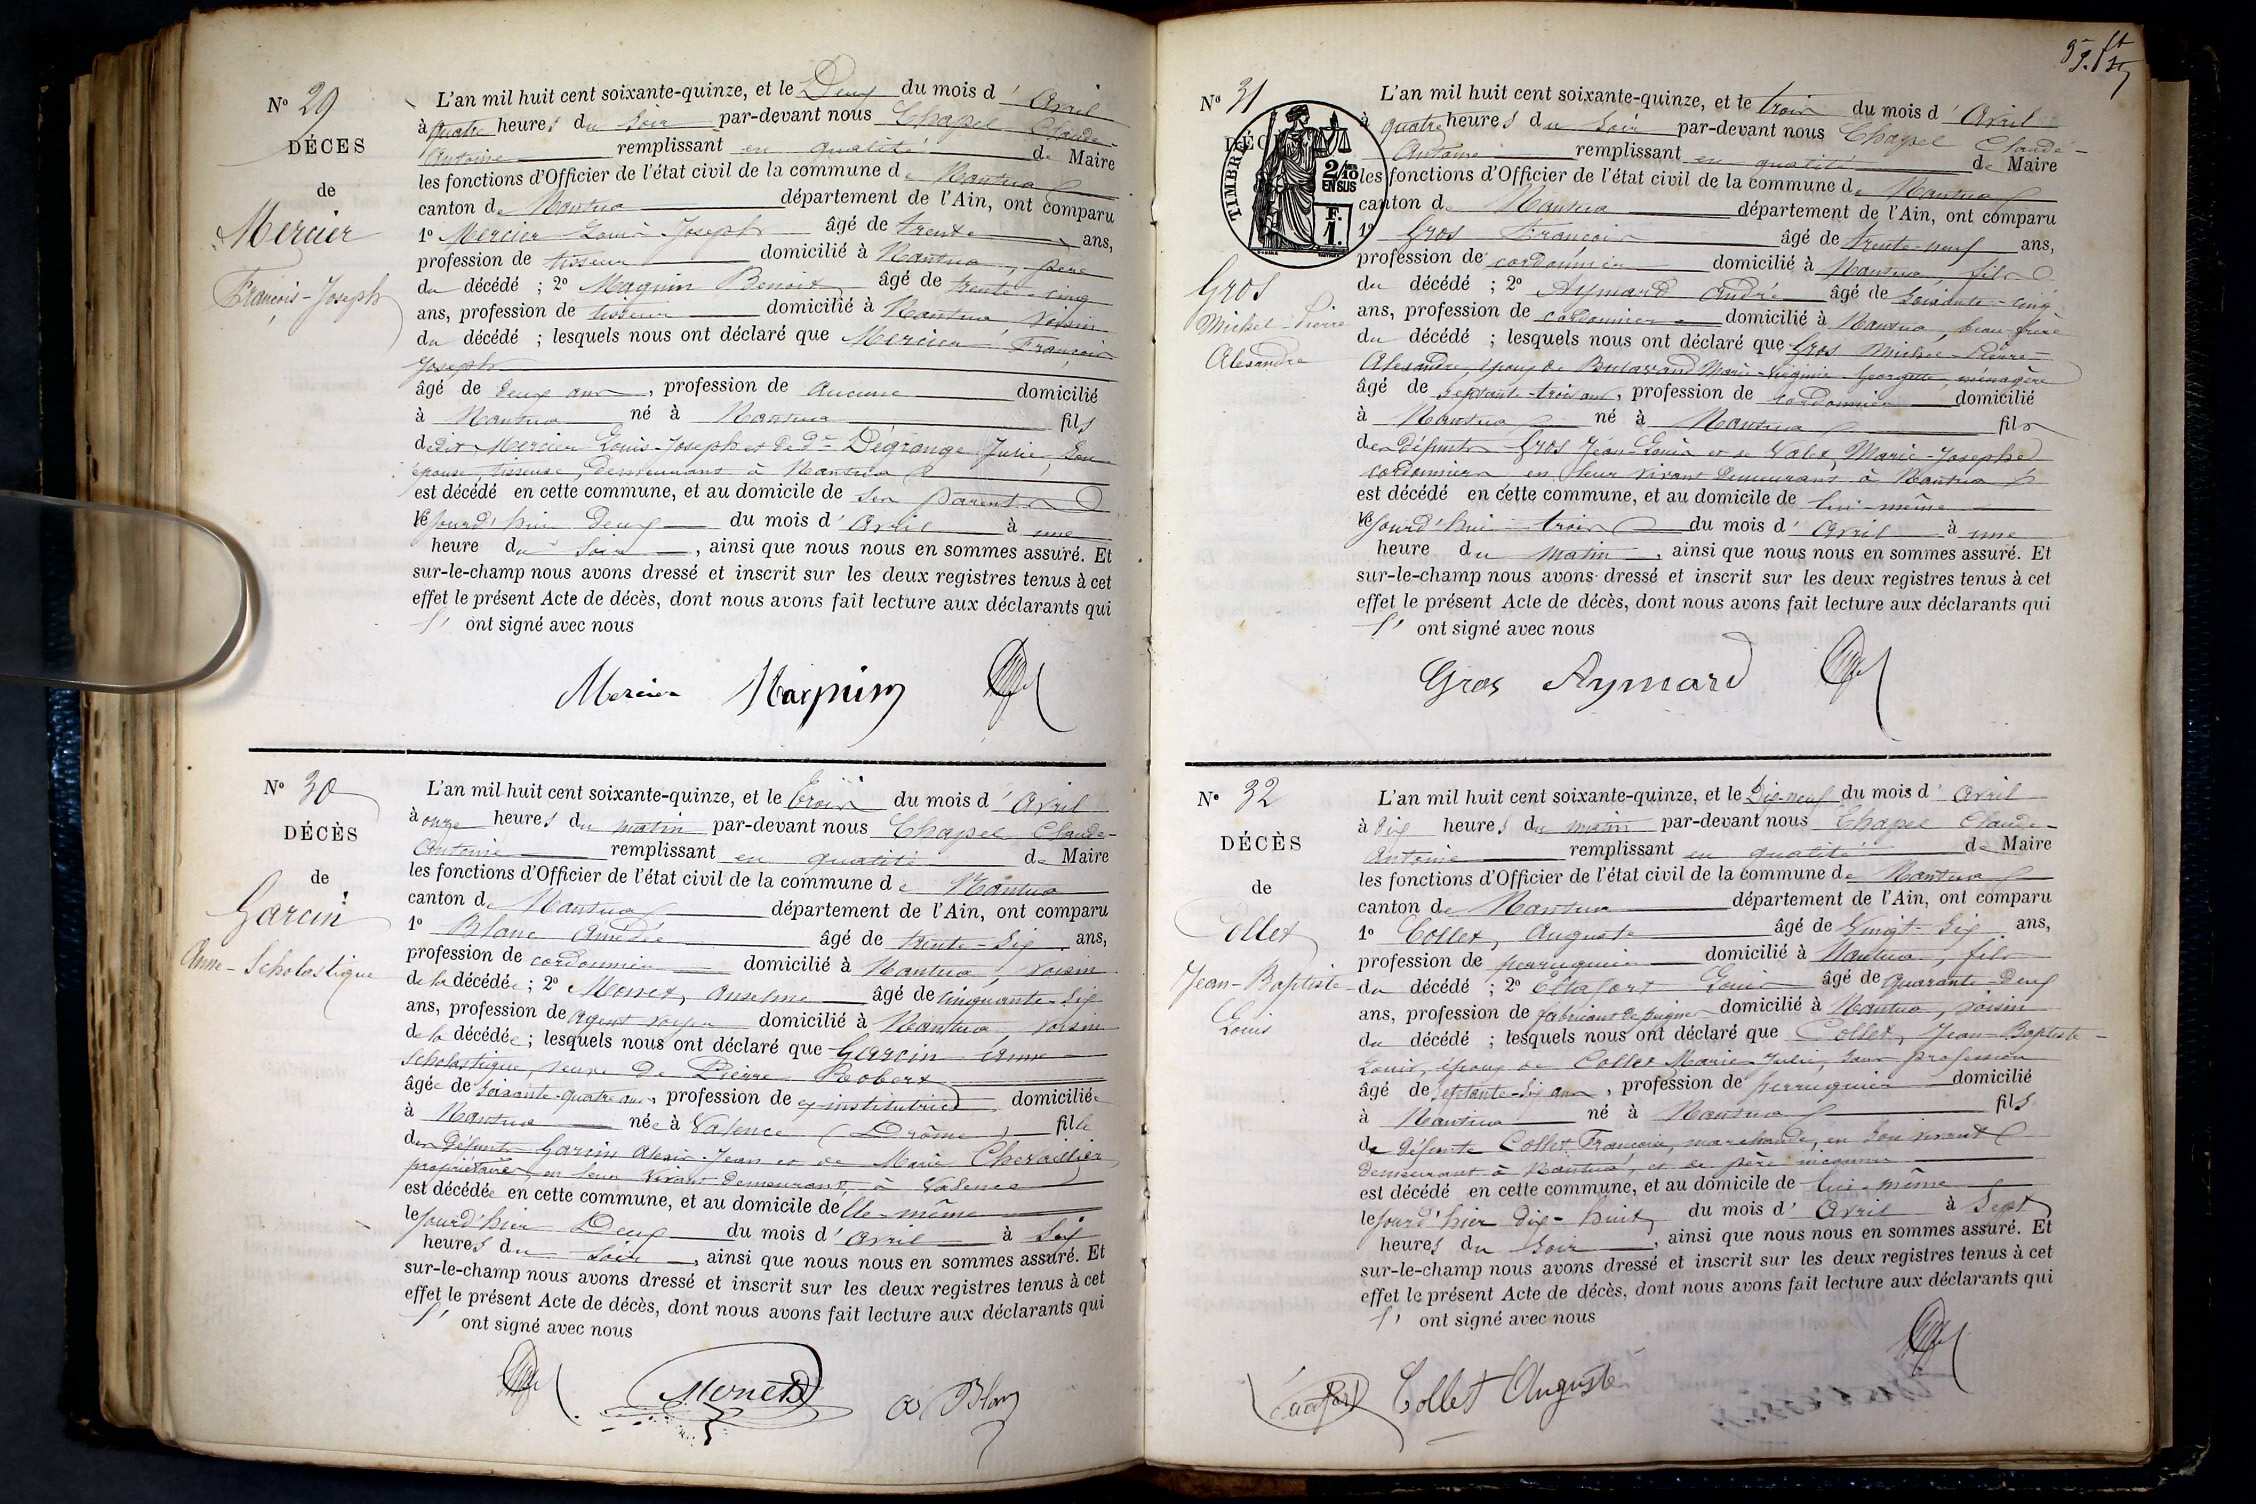 Nº 29
DÉCES
de
Mercier
François-Joseph
L'an mil huit cent soixante-quinze, et le Deux du mois d'Avril
à quatre heures du soir par-devant nous Chapel Claude-
Antoine remplissant en qualité de Maire
les fonctions d'Officier de l'état civil de la commune de Nantua
canton de Nantua département de l'Ain, ont comparu
1º Mercier Louis-Joseph âgé de trente ans,
profession de tisseur domicilié à Nantua, père
du décédé ; 2º Maquin Benoit âgé de trente-cinq
ans, profession de tisseur domicilié à Nantua voisin
du décédé ; lesquels nous ont déclaré que Mercier François
Joseph
âgé de deux ans, profession de aucune domicilié
à Nantua né à Nantua fils
dedit Mercier Louis-Joseph et de de Dégrange Julie, son
épouse, tisseuse, demeurans à Nantua
est décédé en cette commune, et au domicile de ses parents
lejourd'hui Deux du mois d'Avril à une
heure du soir, ainsi que nous nous en sommes assuré. Et
sur-le-champ nous avons dressé et inscrit sur les deux registres tenus à cet
effet le présent Acte de décès, dont nous avons fait lecture aux déclarants qui
ont signé avec nous
Mercier Maquin
Nº 30
DÉCÈS
de
Garcin
Anne-Scholastique
L'an mil huit cent soixante-quinze, et le trois du mois d'Avril
à onze heures du matin par-devant nous Chapel Claude-
Antoine remplissant en qualité de Maire
les fonctions d'Officier de l'état civil de la commune de Nantua
canton de Nantua département de l'Ain, ont comparu
1º Blanc Amédée âgé de trente-six ans,
profession de cordonnier domicilié à Nantua, voisin
de la décédée ; 2º Monet, Anselme âgé de cinquante-six
ans, profession de agent voyer domicilié à Nantua, voisin
de la décédée ; lesquels nous ont déclaré que Garcin Anne
Scholastique, veuve de Pierre Robert
âgée de soixante-quatre ans, profession de ex-institutrice domiciliée
à Nantua née à Valence (Drôme) fille
des défunts Garcin Alexis-Jean et de Marie Chevaillier,
propriétaires en leur vivant demeurant à Valence
est décédée en cette commune, et au domicile de elle-même
lejourd'hier Deux du mois d'Avril à six
heures du soir, ainsi que nous nous en sommes assuré. Et
sur-le-champ nous avons dressé et inscrit sur les deux registres tenus à cet
effet le présent Acte de décès, dont nous avons fait lecture aux déclarants qui
ont signé avec nous
Monet A Blanc
Nº 31
DÉC
TIMBRE
2/10
EN SUS
F.
1.
Gros
Michel-Pierre
Alexandre
L'an mil huit cent soixante-quinze, et le trois du mois d'Avril
à quatre heures du soir par-devant nous Chapel Claude-
Antoine remplissant en qualité de Maire
les fonctions d'Officier de l'état civil de la commune de Nantua
canton de Nantua département de l'Ain, ont comparu
1º Gros François âgé de trente-neuf ans,
profession de cordonnier domicilié à Nantua, fils
du décédé ; 2º Aymard André âgé de soixante-cinq
ans, profession de cordonnier domicilié à Nantua, beau-frère
du décédé ; lesquels nous ont déclaré que Gros Michel-Pierre-
Alexandre, époux de Marie-Virginie Georgette, ménagère
âgé de septante-trois ans, profession de cordonnier domicilié
à Nantua né à Nantua fils
des défunts Gros Jean-Louis et de Marie-Josephe
cordonniers en leur vivant demeurans à Nantua
est décédé en cette commune, et au domicile de lui-même
lejourd'hui trois du mois d'Avril à une
heure du matin, ainsi que nous nous en sommes assuré. Et
sur-le-champ nous avons dressé et inscrit sur les deux registres tenus à cet
effet le présent Acte de décès, dont nous avons fait lecture aux déclarants qui
ont signé avec nous
Gros Aymard
Nº 32
DÉCÈS
de
Collet
Jean-Baptiste-
Louis
L'an mil huit cent soixante-quinze, et le Dix-neuf du mois d'Avril
à dix heures du matin par-devant nous Chapel Claude-
Antoine remplissant en qualité de Maire
les fonctions d'Officier de l'état civil de la commune de Nantua
canton de Nantua département de l'Ain, ont comparu
1º Collet, Auguste âgé de vingt-six ans,
profession de perruquier domicilié à Nantua, fils
du décédé ; 2º Louis âgé de quarante-deux
ans, profession de fabricant de peignes domicilié à Nantua, voisin
du décédé ; lesquels nous ont déclaré que Collet, Jean-Baptiste-
Louis, époux de Collet Marie-Julie, sans profession
âgé de septante-six ans, profession de perruquier domicilié
à Nantua né à Nantua fils
de défunte Collet Françoise, marchande, en son vivant
demeurant à Nantua, et de père inconnu
est décédé en cette commune, et au domicile de lui-même
lejourd'hier dix-huit du mois d'Avril à sept
heures du soir, ainsi que nous nous en sommes assuré. Et
sur-le-champ nous avons dressé et inscrit sur les deux registres tenus à cet
effet le présent Acte de décès, dont nous avons fait lecture aux déclarants qui
ont signé avec nous
Collet Auguste